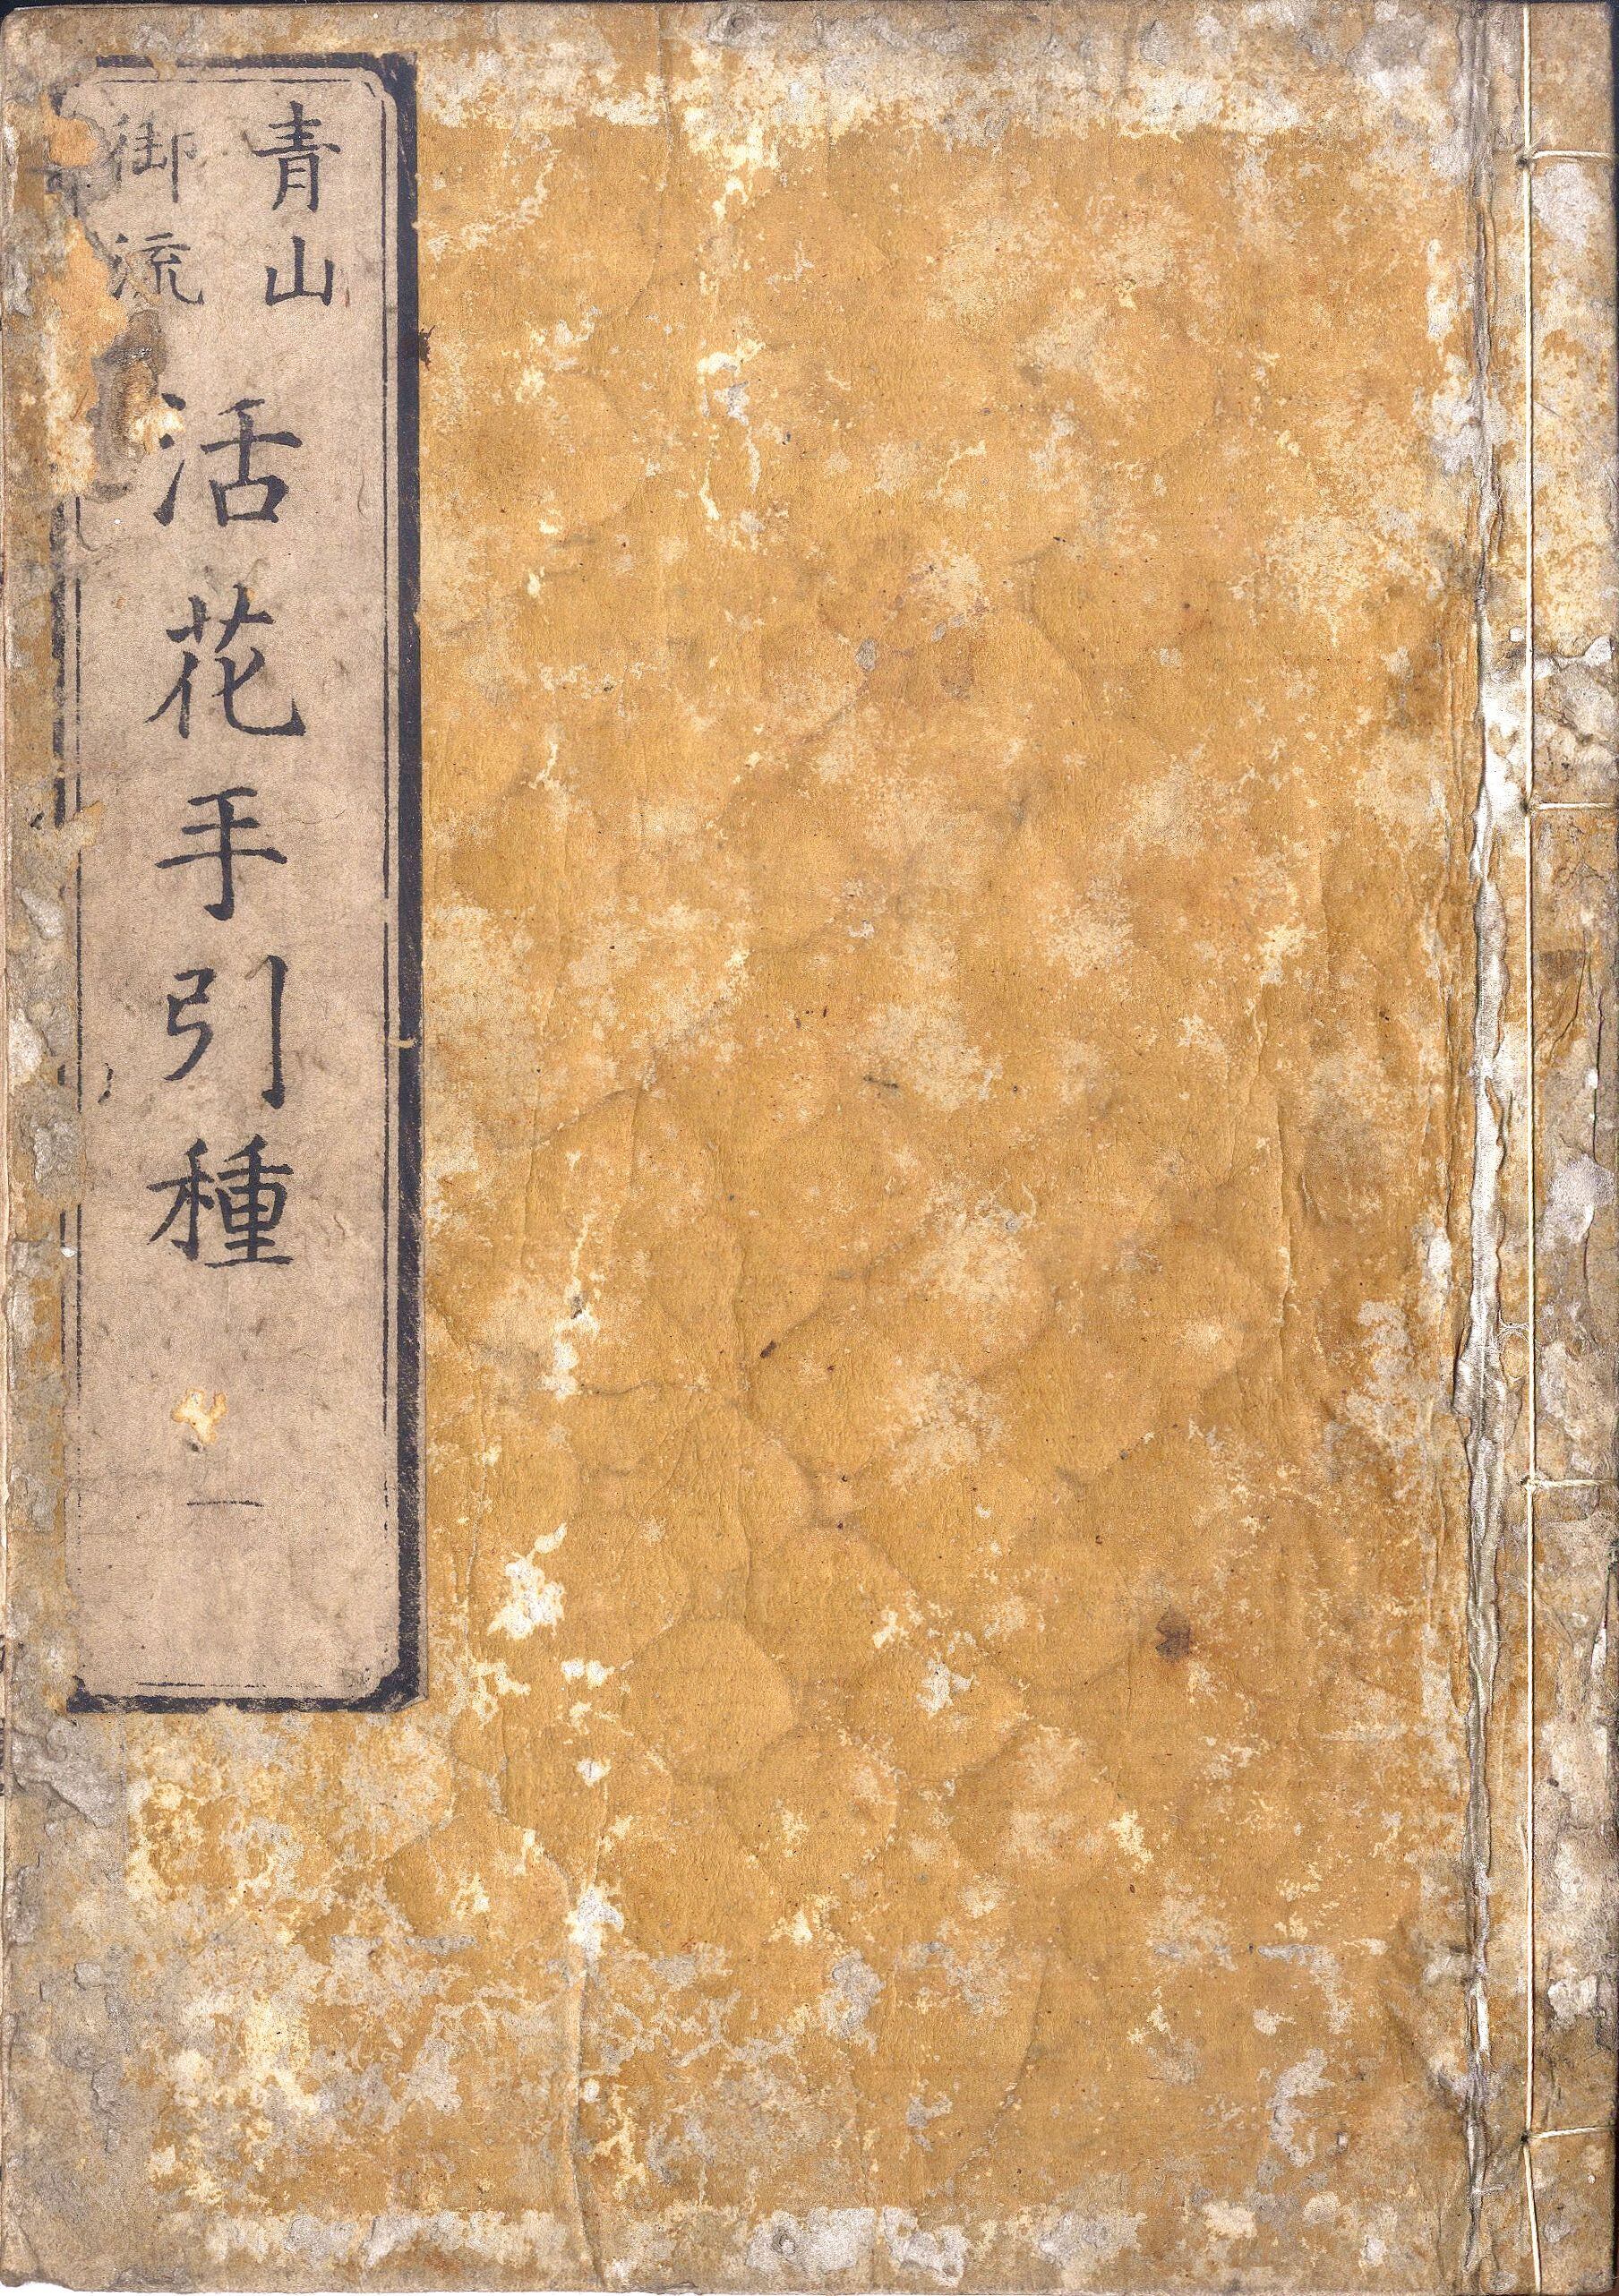 青山
御流
活花手引種
一